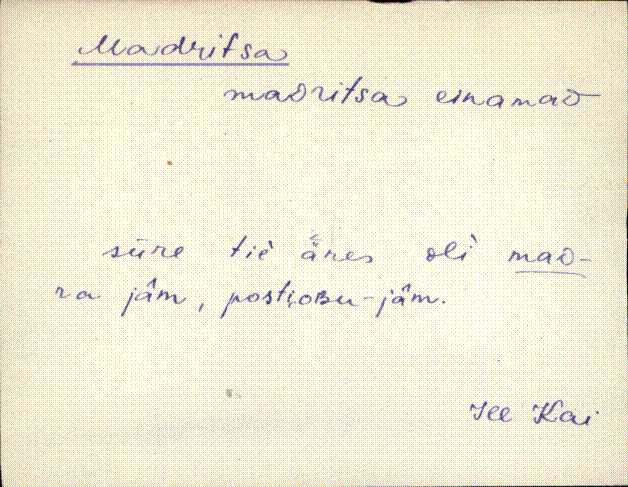 Madritsa
madritsa einamad
süre tiè ä̂res oli mad-
ra jâm, postiobu-jâm.
Kai